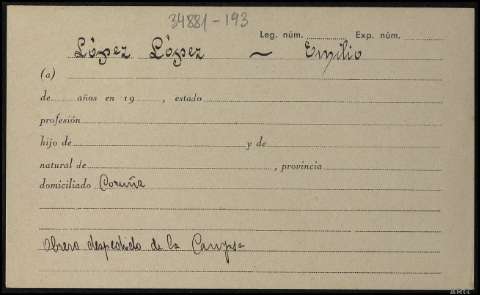 34881-193
Leg. núm. Exp. núm.
López López ~ Emilio
(a)
de años en 19 , estado
profesión
hijo de y de
natural de , provincia
domiciliado Coruña
Obrero despedido de la Campsa